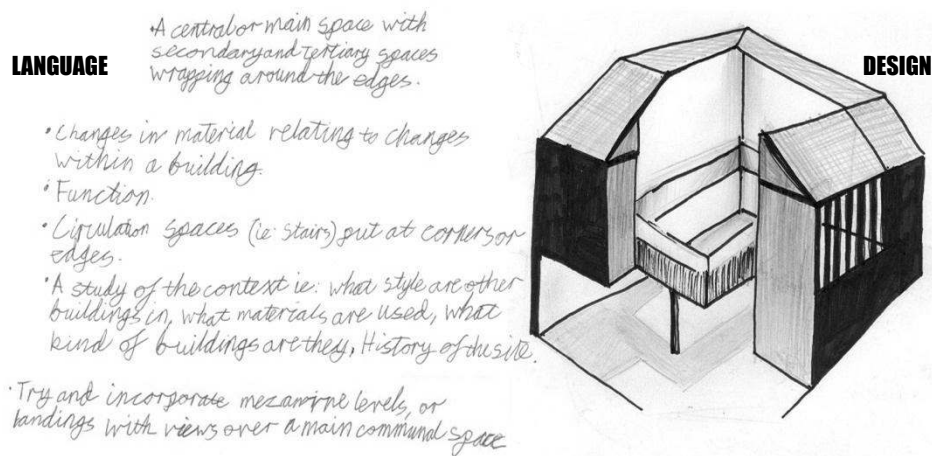 LANGUAGE
DESIGN
·A central or main space with
secondary and tertiary spaces
wrapping around the edges.
·Changes in material relating to changes
within a building.
·Function.
·Circulation spaces (ie: stairs) put at corners or
edges.
·A study of the context ie: what style are other
buildings in, what materials are used, what
kind of buildings are they, History of the site.
·Try and incorporate mezanine levels, or
landings with views over a main communal space